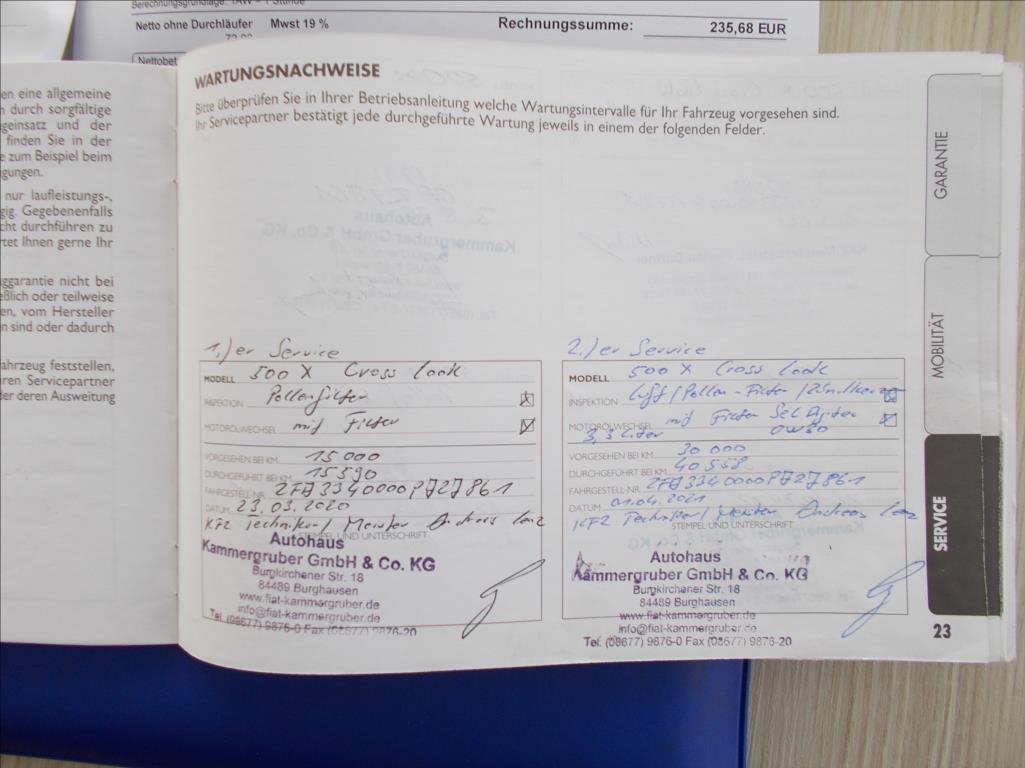 Berechnungsgrundlage: 1AW = 1 Stunde
Netto ohne Durchläufer Mwst 19 % Rechnungssumme: 235,68 EUR
Nettobet
en eine allgemeine
durch sorgfältige
geinsatz und der
finden Sie in der
zum Beispiel beim
gungen.
nur laufleistungs-,
gig. Gegebenenfalls
cht durchführen zu
rtet Ihnen gerne Ihr
ggarantie nicht bei
eßlich oder teilweise
en, vom Hersteller
n sind oder dadurch
ahrzeug feststellen,
hren Servicepartner
der deren Ausweitung
WARTUNGSNACHWEISE
Bitte überprüfen Sie in Ihrer Betriebsanleitung welche Wartungsintervalle für Ihr Fahrzeug vorgesehen sind.
Ihr Servicepartner bestätigt jede durchgeführte Wartung jeweils in einem der folgenden Felder.
1.)er Service
MODELL 500 X Cross look
INSPEKTION Pollenfilter
MOTORÖLWECHSEL mit Filter
VORGESEHEN BEI KM 15000
DURCHGEFÜHRT BEI KM 15590
FAHRGESTELL-NR. ZFA3340000P727861
DATUM 23.03.2020
KFZ Techniker/Meister Andreas
STEMPEL UND UNTERSCHRIFT
Autohaus
Kammergruber GmbH & Co. KG
Burgkirchener Str. 18
84489 Burghausen
www.fiat-kammergruber.de
info@fiat-kammergruber.de
Tel. (08677) 9876-0 Fax (08677) 9876-20
2.)er Service
MODELL 500 X Cross look
INSPEKTION Luft/Pollen-Filter/Zündkerze
MOTORÖLWECHSEL mit Filter Selenia
3,3 Liter 0W30
VORGESEHEN BEI KM 30 000
DURCHGEFÜHRT BEI KM 40 558
FAHRGESTELL-NR. ZFA3340000P727861
DATUM 01.04.2021
KFZ Techniker/Meister Andreas
STEMPEL UND UNTERSCHRIFT
Autohaus
Kammergruber GmbH & Co. KG
Burgkirchener Str. 18
84489 Burghausen
www.fiat-kammergruber.de
info@fiat-kammergruber.de
Tel. (08677) 9876-0 Fax (08677) 9876-20
GARANTIE
MOBILITÄT
SERVICE
23